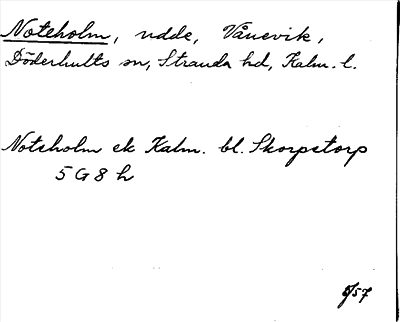 Noteholm, udde, Vånevik,
Döderhults sn, Stranda hd, Kalm. l.
Noteholm ek Kalm. bl. Skorpetorp
5 G 8 h
6/57